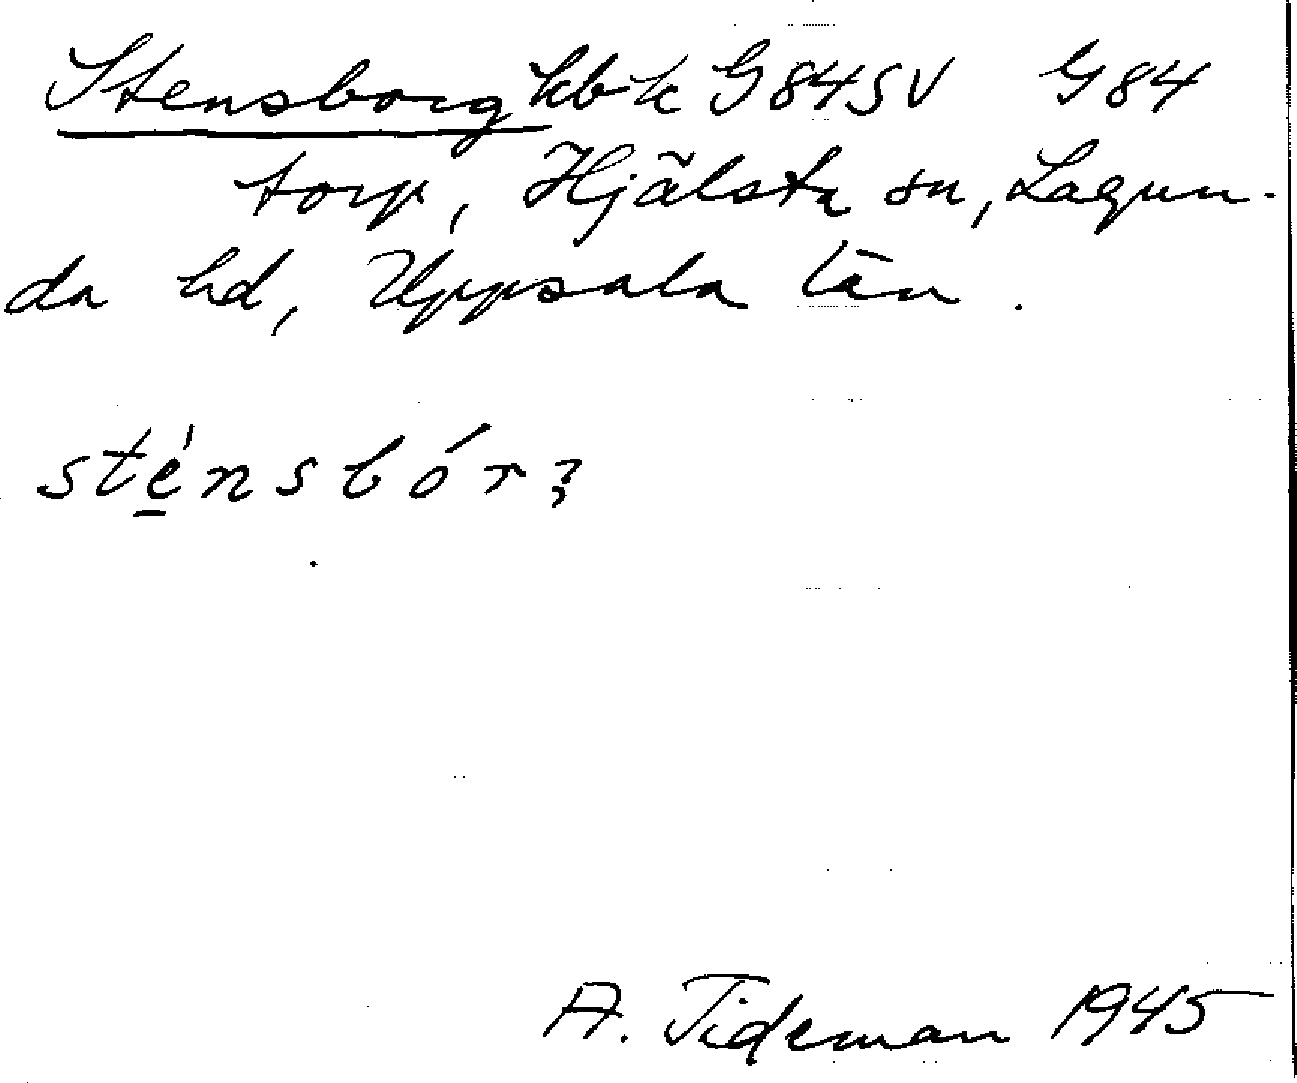 Stensborg kbk G84SV G84
torp, Hjälsta sn, Lagun-
da hd, Uppsala län.
sténsbórȝ
A. Tideman 1945